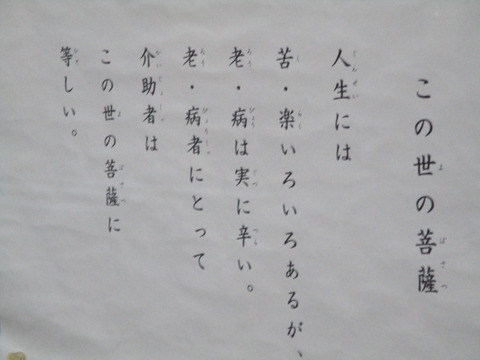 この世の菩薩
人生には
苦・楽いろいろあるが、
老・病は実に辛い。
老・病者にとって
介助者は
この世の菩薩に
等しい。